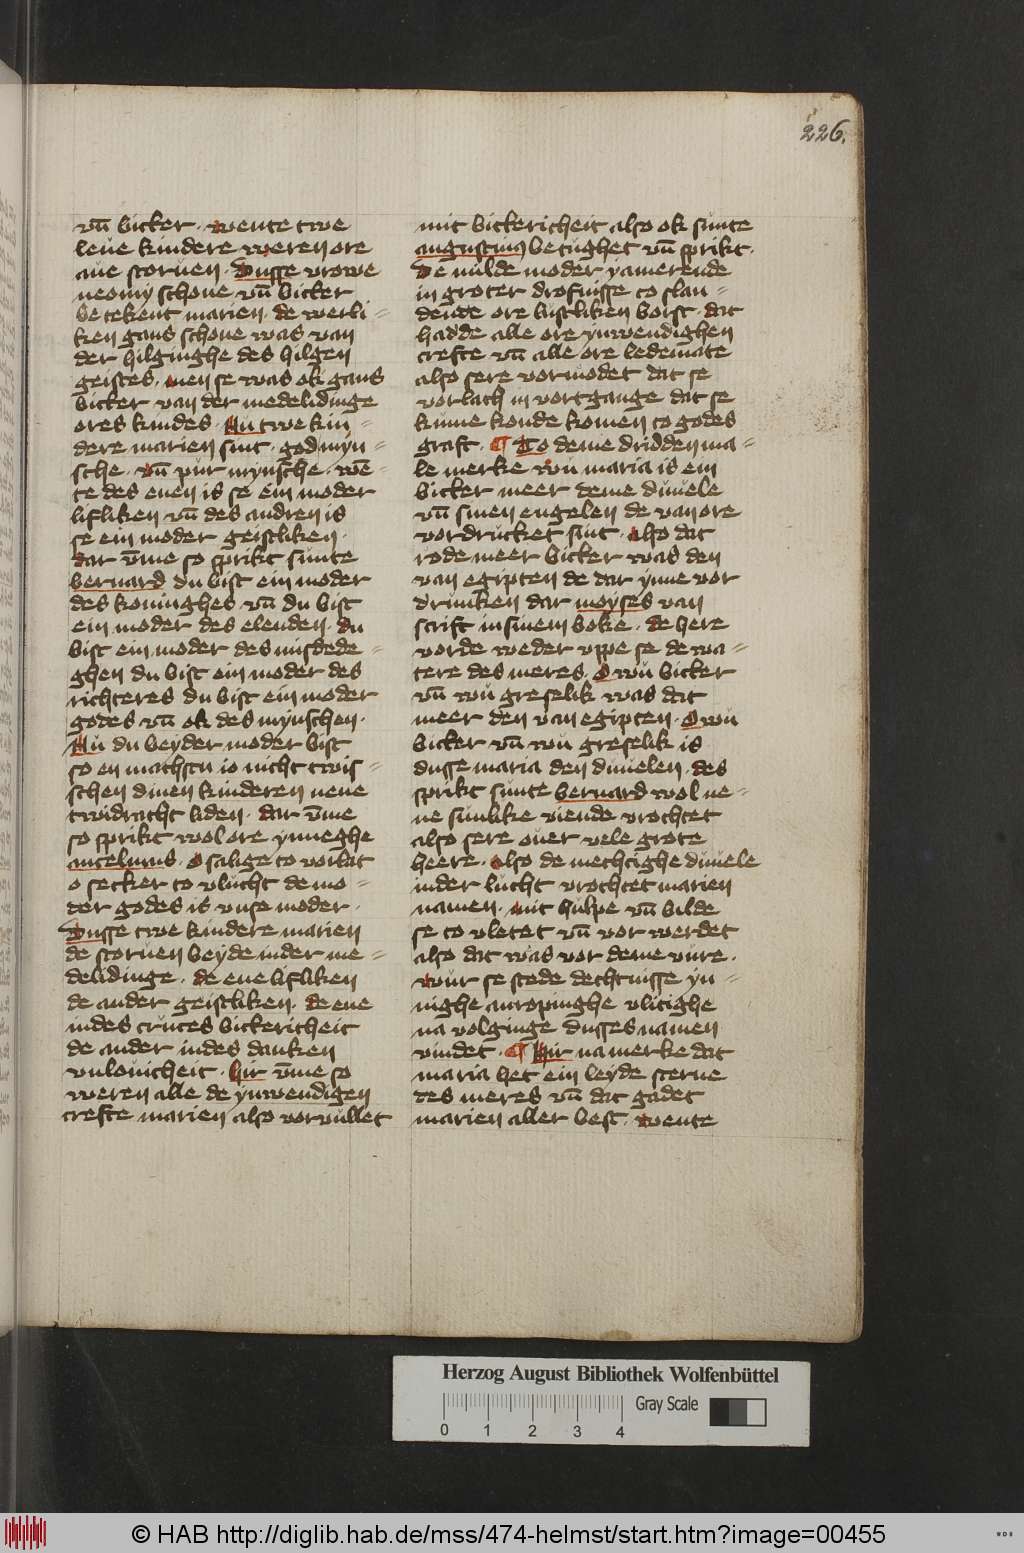 226.
vn̄ bicker. wente twe
leue kindere weren ore
aue storuen. Dusse vrowe
neomy schone vn̄ bicker
betekent marien. de werli=
ken gans schone was van
der hilginghe des hilgen
geistes. men se was ok gans
bicker van der medelidinge
ores kindes. Nu twe kin=
dere marien sint. god myn=
sche. vn̄ půr mynsche. wē=
te des enen is se ein moder
lifliken vn̄ des andren is
se ein moder geistliken.
dar v̄me so sprikt sůnte
bernard du bist ein moder
des koninghes vn̄ du bist
ein moder des elenden. du
bist ein moder des misdede=
ghen du bist ein moder des
richteres du bist ein moder
godes vn̄ ok des mynschen.
Nů du beyder moder bist
so en machstu io nicht twis=
schen dinen kinderen nene
twidracht liden. dar v̄me
so sprikt wol ore ynneghe
ancelmus. O salige to vorlat
o secker to vlůcht de mo=
der godes is vnse moder.
Dusse twe kindere marien
de storuen beyde inder me=
delidinge. de ene lifliken
de ander geistliken. de ene
indes crůces bickericheit
de ander indes danken
vnlouicheit. Hir v̄me so
weren alle de ynwendigen
crefte marien also vorvůllet
mit bickericheit also ok sůnte
augustinus betůghet vn̄ sprikt.
De mílde moder yamerende
in groter drofnisse to slan=
dende ore lůstliken borst. dat
hadde alle ore ynwendighen
crefte vn̄ alle ore ledemate
also sere vormodet dat se
vorlach in vortgange dat se
kume konde komen to godes
graft. ¶ To deme dridden ma=
le merke wů maria is ein
bicker meer deme důuele
vn̄ sinen engelen de van ore
vordrůcket sint. also dat
rode meer bicker was den
van egipten de dar ynne vor
drůnken dar moyses van
scrift in sinem boke. de here
vorde weder vppe se de wa=
tere des meres. O wů bicker
vn̄ wů greselik was dat
meer den van egipten. O wů
bicker vn̄ wů greselik is
dusse maria den důuelen. des
sprikt sůnte bernard wol ne=
ne sůnlike viende vrochtet
also sere ouer vele grote
heere. also de mechtighe důuele
inder lůcht vrochtet marien
namen. mit hůlpe vn̄ bilde
se to vletet vn̄ vor werdet
also dat was vor deme vůre.
wůr se stede dechtnisse yn=
nighe anropinghe vlitighe
na volginge dusses namen
vindet. ¶ Hir na merke dat
maria het ein leyde sterne
des meres vn̄ dat gadet
marien aller best. wente
Herzog August Bibliothek Wolfenbüttel
Gray Scale
0 1 2 3 4
© HAB http://diglib.hab.de/mss/474-helmst/start.htm?image=00455